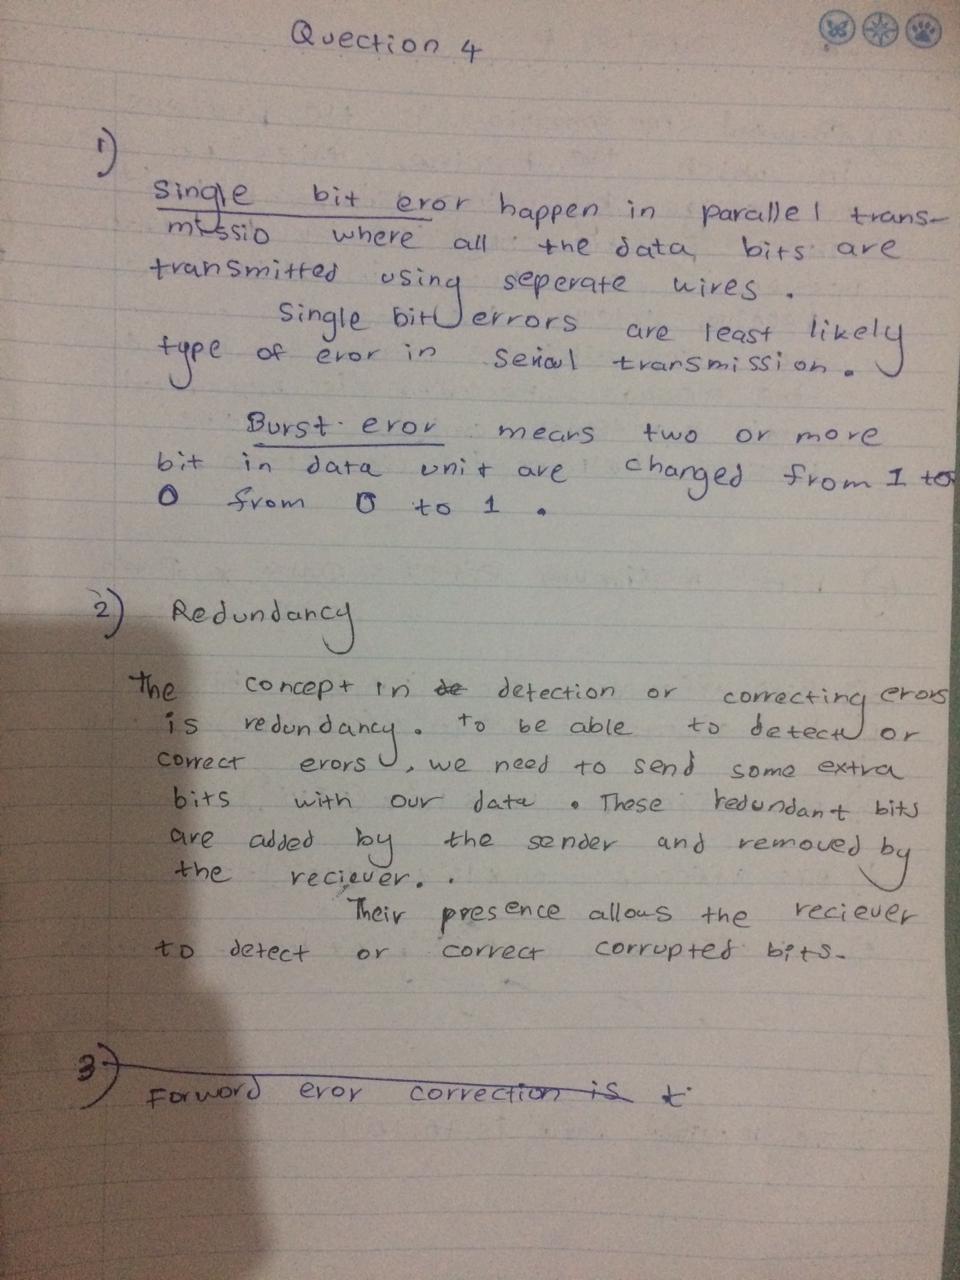 Quection 4
1)
Single bit eror happen in parallel trans-
missio where all the data bits are
transmitted using seperate wires.
Single bit errors are least likely
type of eror in serial transmission.
Burst eror means two or more
bit in data unit are changed from 1 to
0 from 0 to 1.
2) Redundancy
The concept in de detection or correcting erors
is redundancy. To be able to detect or
correct erors, we need to send some extra
bits with our data. These redundant bits
are added by the sender and removed by
the reciever.
Their presence allows the reciever
to detect or correct corrupted bits.
3)
Forword eror correction is t